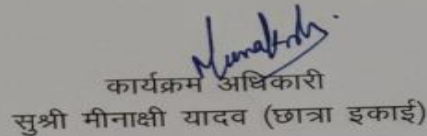 कार्यक्रम अधिकारी
सुश्री मीनाक्षी यादव (छात्रा इकाई)